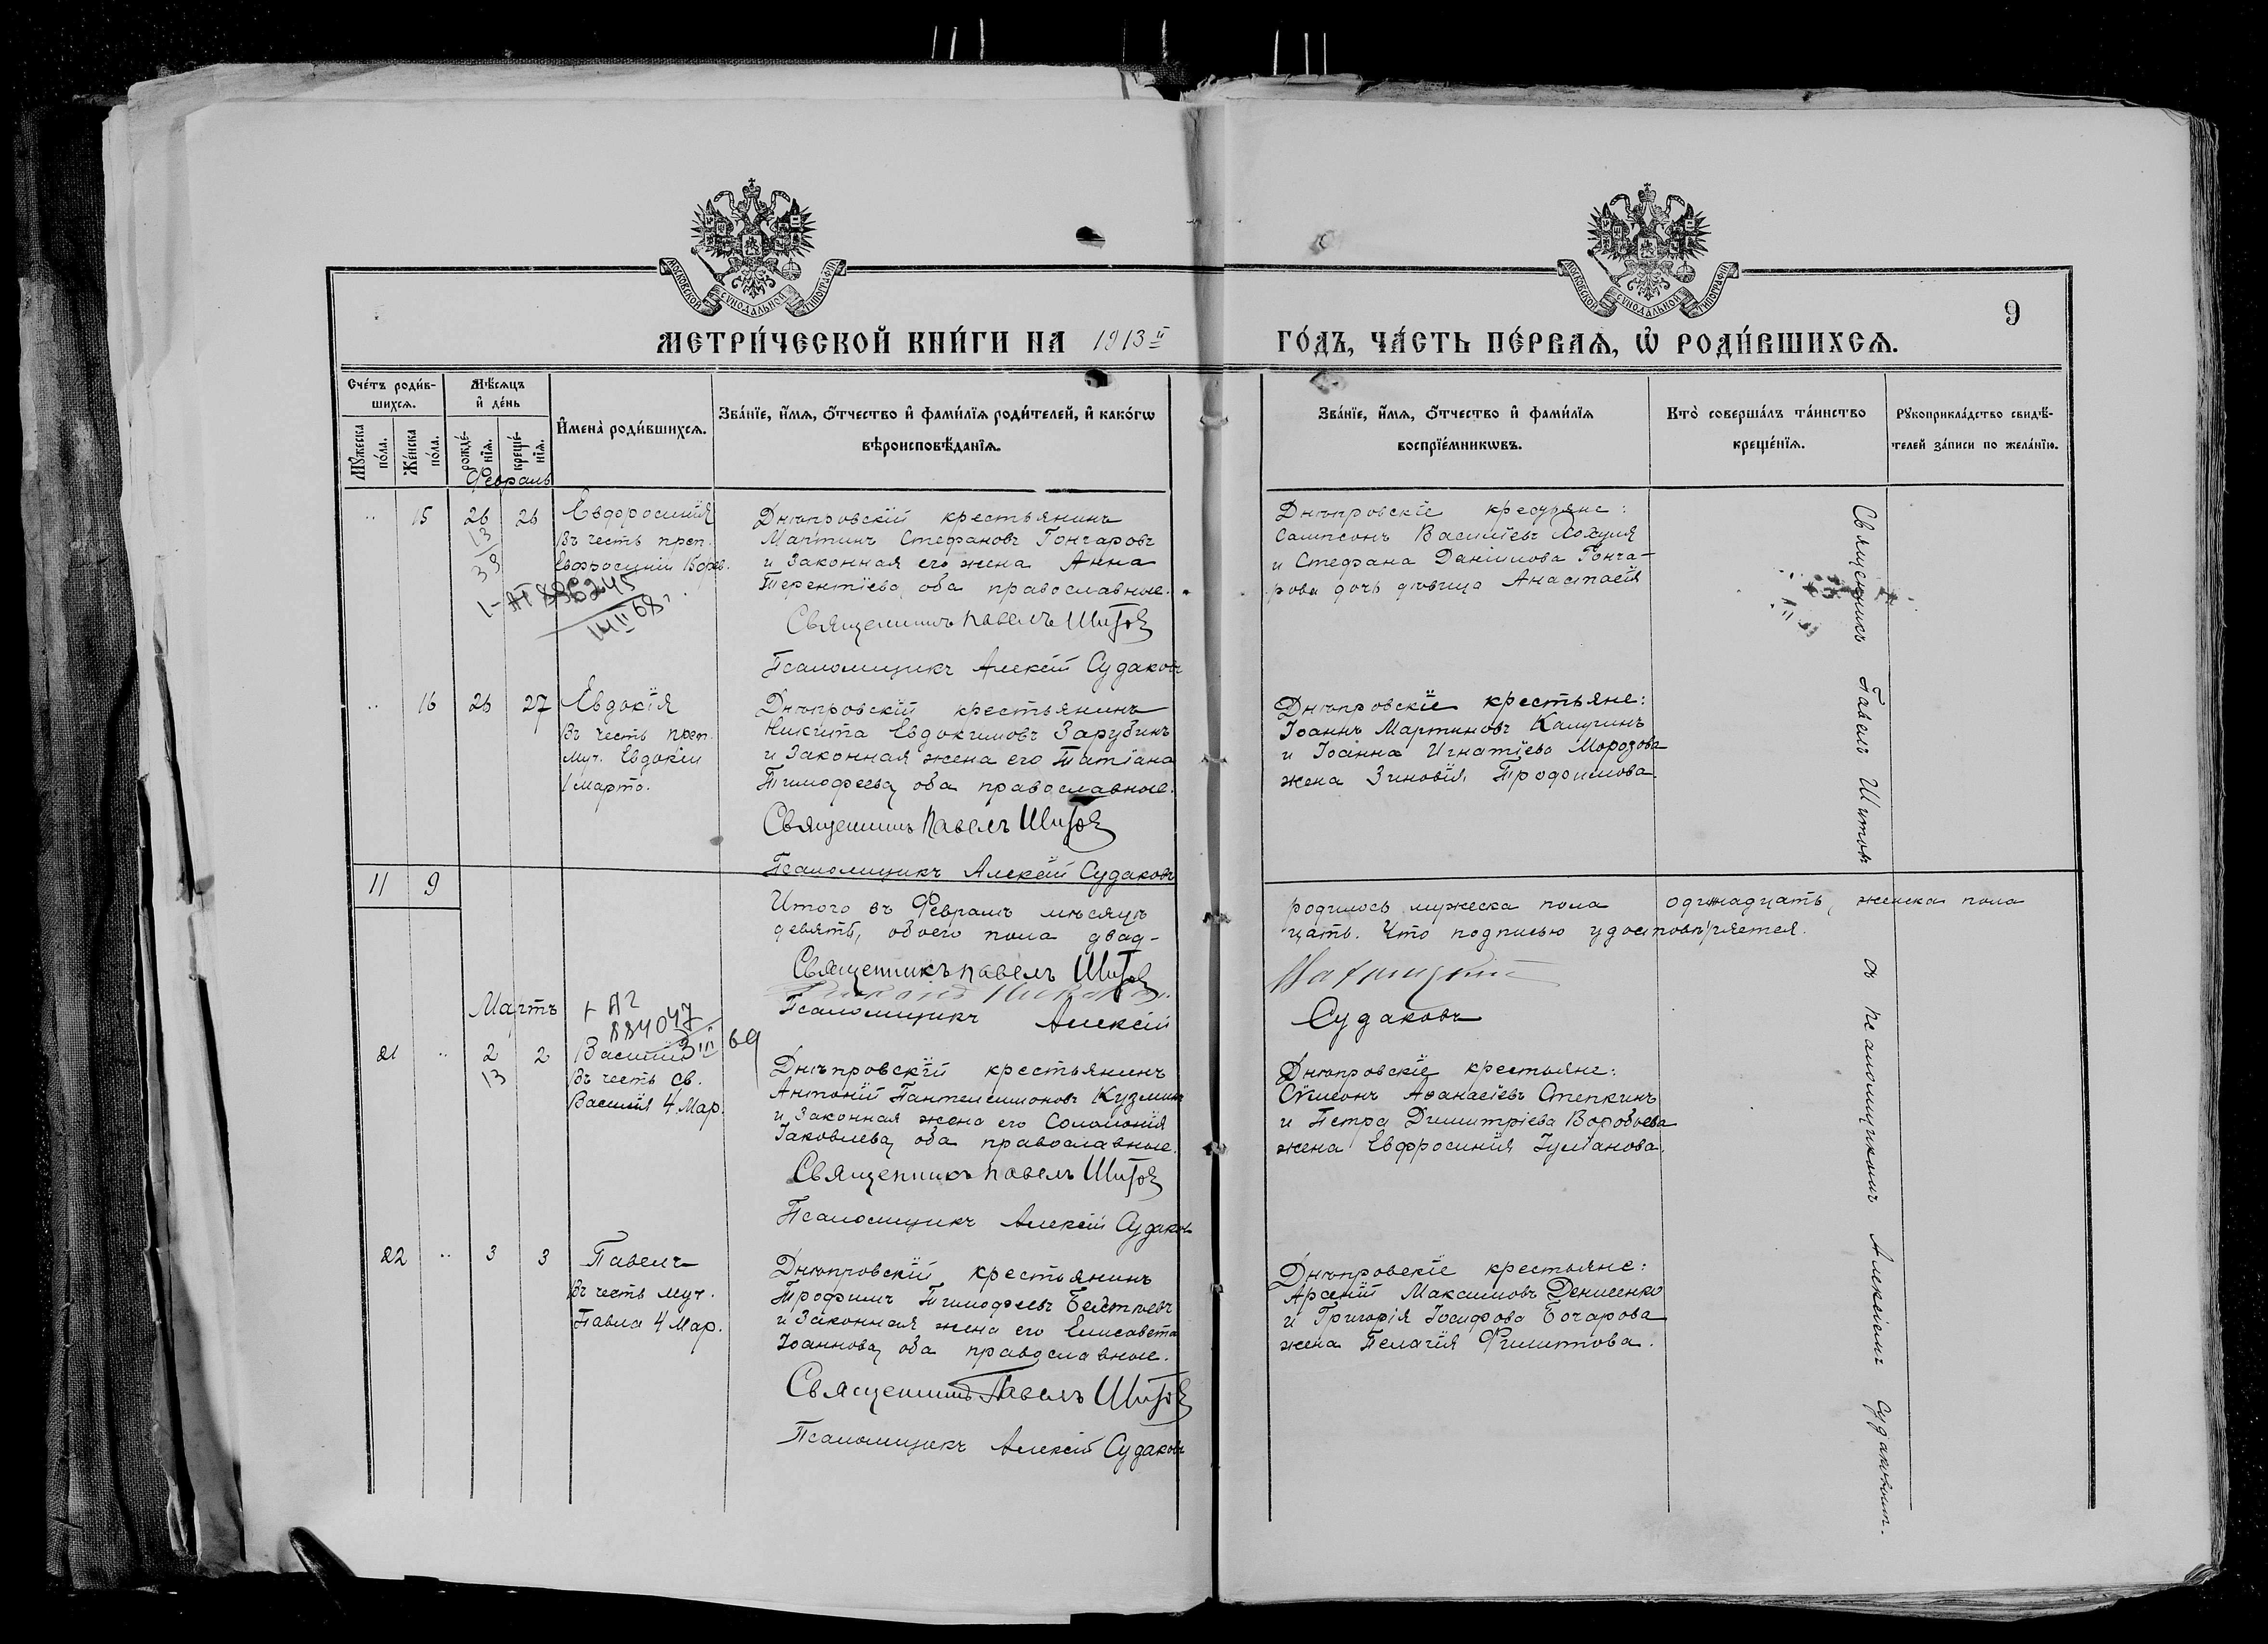 МОСКОВСКОЙ СУНОДАЛЬНОЙ ТИПОГРАФІИ
МОСКОВСКОЙ СУНОДАЛЬНОЙ ТИПОГРАФІИ
9
МЕТРИ́ЧЕСКОЙ КНИ́ГИ НА 1913 й ГО́ДЪ, ЧА́СТЬ ПЕ́РВАѦ, Ѡ҆ РОДИ́ВШИХСѦ.
Сче́тъ роди́в-
шихсѧ.
Мѣ́сѧцъ
и҆ де́нь
Му́жеска
по́ла.
Же́нска
по́ла.
рожде́-
нїѧ.
креще́-
нїѧ.
И҆мена̀ роди́вшихсѧ.
Зва́нїе, и҆́мѧ, ѻ҆́тчество и҆ фами́лїѧ роди́телей, и҆ како́гѡ
вѣроисповѣ́данїѧ.
Зва́нїе, и҆́мѧ, ѻ҆́тчество и҆ фами́лїѧ
воспрїе́мникѡвъ.
Кто̀ соверша́лъ та́инство
креще́нїѧ.
Рꙋкоприкла́дство свидѣ́-
телей за́писи по жела́нїю.
Февраль
" 15 26 26 Евфросинія
13
39
Въ честь преп.
Евфросиніи
1-АГ 896245
14 II 68 г
Днѣпровскій крестьянинъ
Мартинъ Стефановъ Гончаровъ
и законная его жена Анна
Терентіева, оба православные.
Священникъ Павелъ Шитов
Псаломщикъ Алексій Судаковъ
Днѣпровскіе крестьяне:
Сампсонъ Василіевъ
и Стефана Даніилова Гонча-
рова дочь дѣвица Анастасія
Священникъ Павелъ Шитовъ
съ псаломщикомъ Алексіемъ Судаковымъ.
" 16 26 27 Евдокія
Въ честь преп.
муч. Евдокіи
1 марта.
Днѣпровскій крестьянинъ
Никита Евдокимовъ Зарубинъ
и законная жена его Татіана
Тимофеева, оба православные.
Священникъ Павелъ Шитов
Псаломщикъ Алексій Судаковъ
Днѣпровскіе крестьяне:
Іоаннъ Мартиновъ Калугинъ
и Іоанна Игнатіева Морозова
жена Зиновія Трофимова.
11 9
Итого въ Февралѣ мѣсяцѣ родилось мужеска пола одинадцать, женска пола
девять, обоего пола двад- цать. Что подписью удостовѣряется.
Священникъ Павелъ Шитов
Псаломщикъ Алексій Судаковъ
Мартъ
1 АГ
884047
3 III 69
21 " 2 2 Василій
13
Въ честь св.
Василія 4 Мар.
Днѣпровскій крестьянинъ
Антоній Пантелеимоновъ Кузминъ
и законная жена его Соломонія
Іаковлева, оба православные.
Священникъ Павелъ Шитов
Псаломщикъ Алексій Судаковъ
Днѣпровскіе крестьяне:
Сѵмеонъ Аѳанасіевъ Степкинъ
и Петра Димитріева Воробьева
жена Евфросинія Іуліанова.
22 " 3 3 Павелъ
Въ честь муч.
Павла 4 Мар.
Днѣпровскій крестьянинъ
Трофимъ Тимофеевъ
и законная жена его Елисавета
Іоаннова, оба православные.
Священникъ Павелъ Шитов
Псаломщикъ Алексій Судаковъ
Днѣпровскіе крестьяне:
Арсеній Максимовъ Денисенко
и Григорія Іосифова Бочарова
жена Пелагія Филиппова.